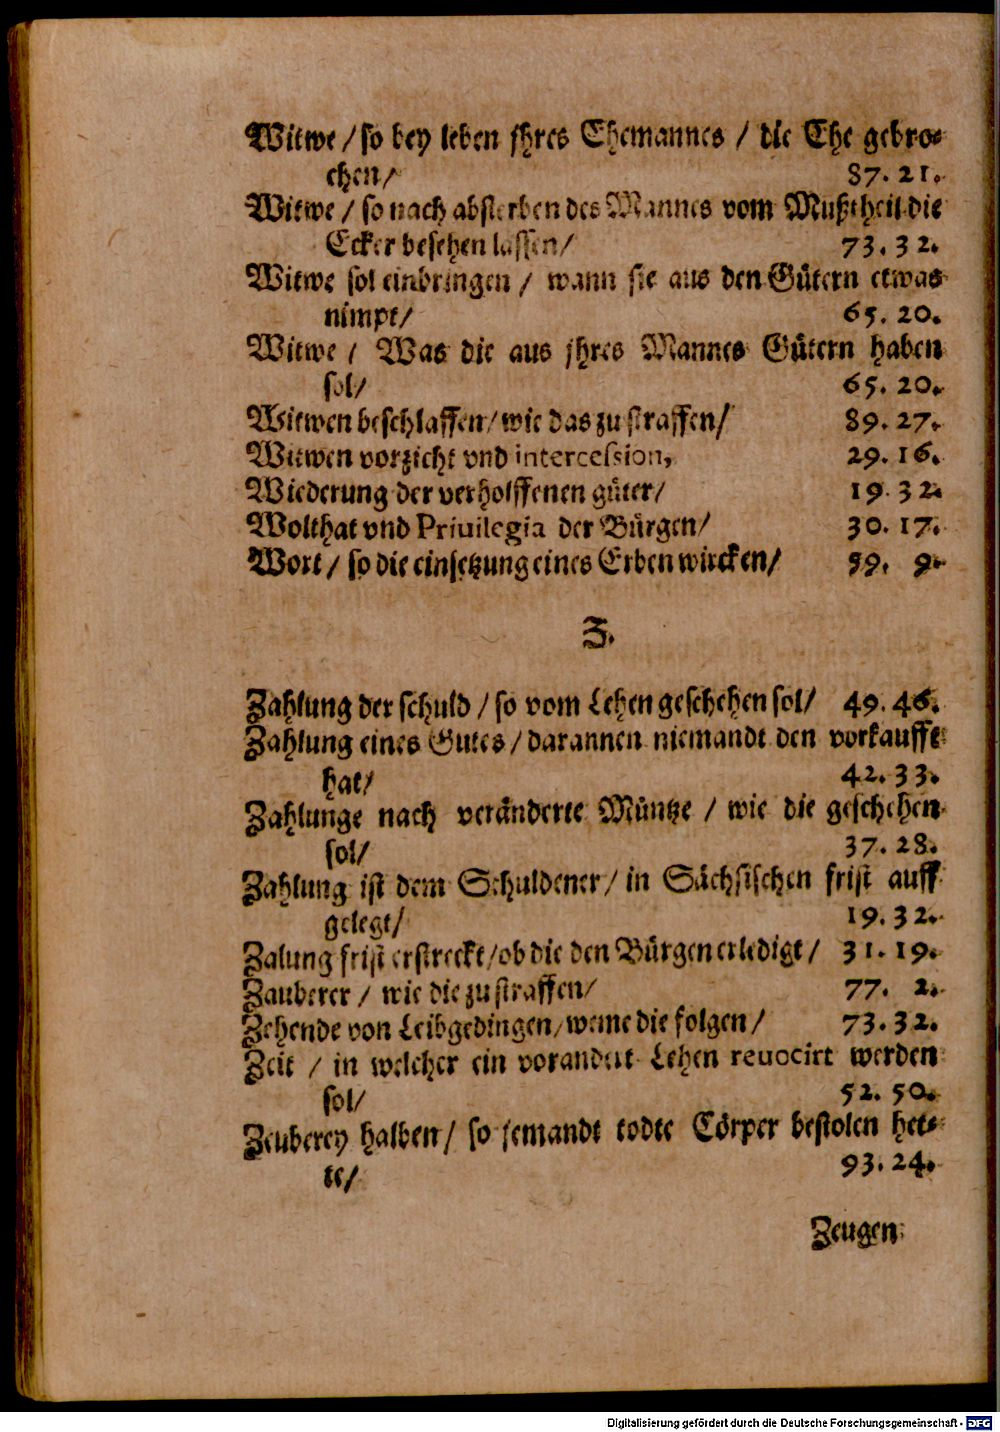 Witwe / so bey leben jhres Ehemannes / die Ehe gebro-
chen / 87. 21.
Witwe / so nach absterben des Mannes vom Mußtheil die
Ecker besehen lassen / 73. 32.
Witwe sol einbringen / wann sie aus den Gütern etwas
nimpt / 65. 20.
Witwe / Was die aus jhres Mannes Gütern haben
sol / 65. 20.
Witwen beschlaffen / wie das zu straffen / 89. 27.
Witwen vorzicht vnd intercession, 29. 16.
Wiederung der verholffenen güter / 19. 32.
Wolthat vnd Priuilegia der Bürgen / 30. 17.
Wort / so die einsetzung eines Erben wircken / 59. 9.
Z.
Zahlung der schuld / so vom Lehen geschehen sol / 49. 46.
Zahlung eines Gutes / darannen niemandt den vorkaufft
hat / 42. 33.
Zahlunge nach veränderte Müntze / wie die geschehen
sol / 37. 28.
Zahlung ist dem Schuldener / in Sächsischen frist auff
gelegt / 19. 32.
Zalung frist erstreckt / ob die den Bürgen erledigt / 31. 19.
Zauberer / wie die zu straffen / 77. 2.
Zehende von Leibgedingen / weme die folgen / 73. 32.
Zeit / in welcher ein vorandert Lehen reuocirt werden
sol / 52. 50.
Zeuberey halben / so jemandt todte Cörper bestolen het-
te / 93. 24.
Zeugen
Digitalisierung gefördert durch die Deutsche Forschungsgemeinschaft - DFG